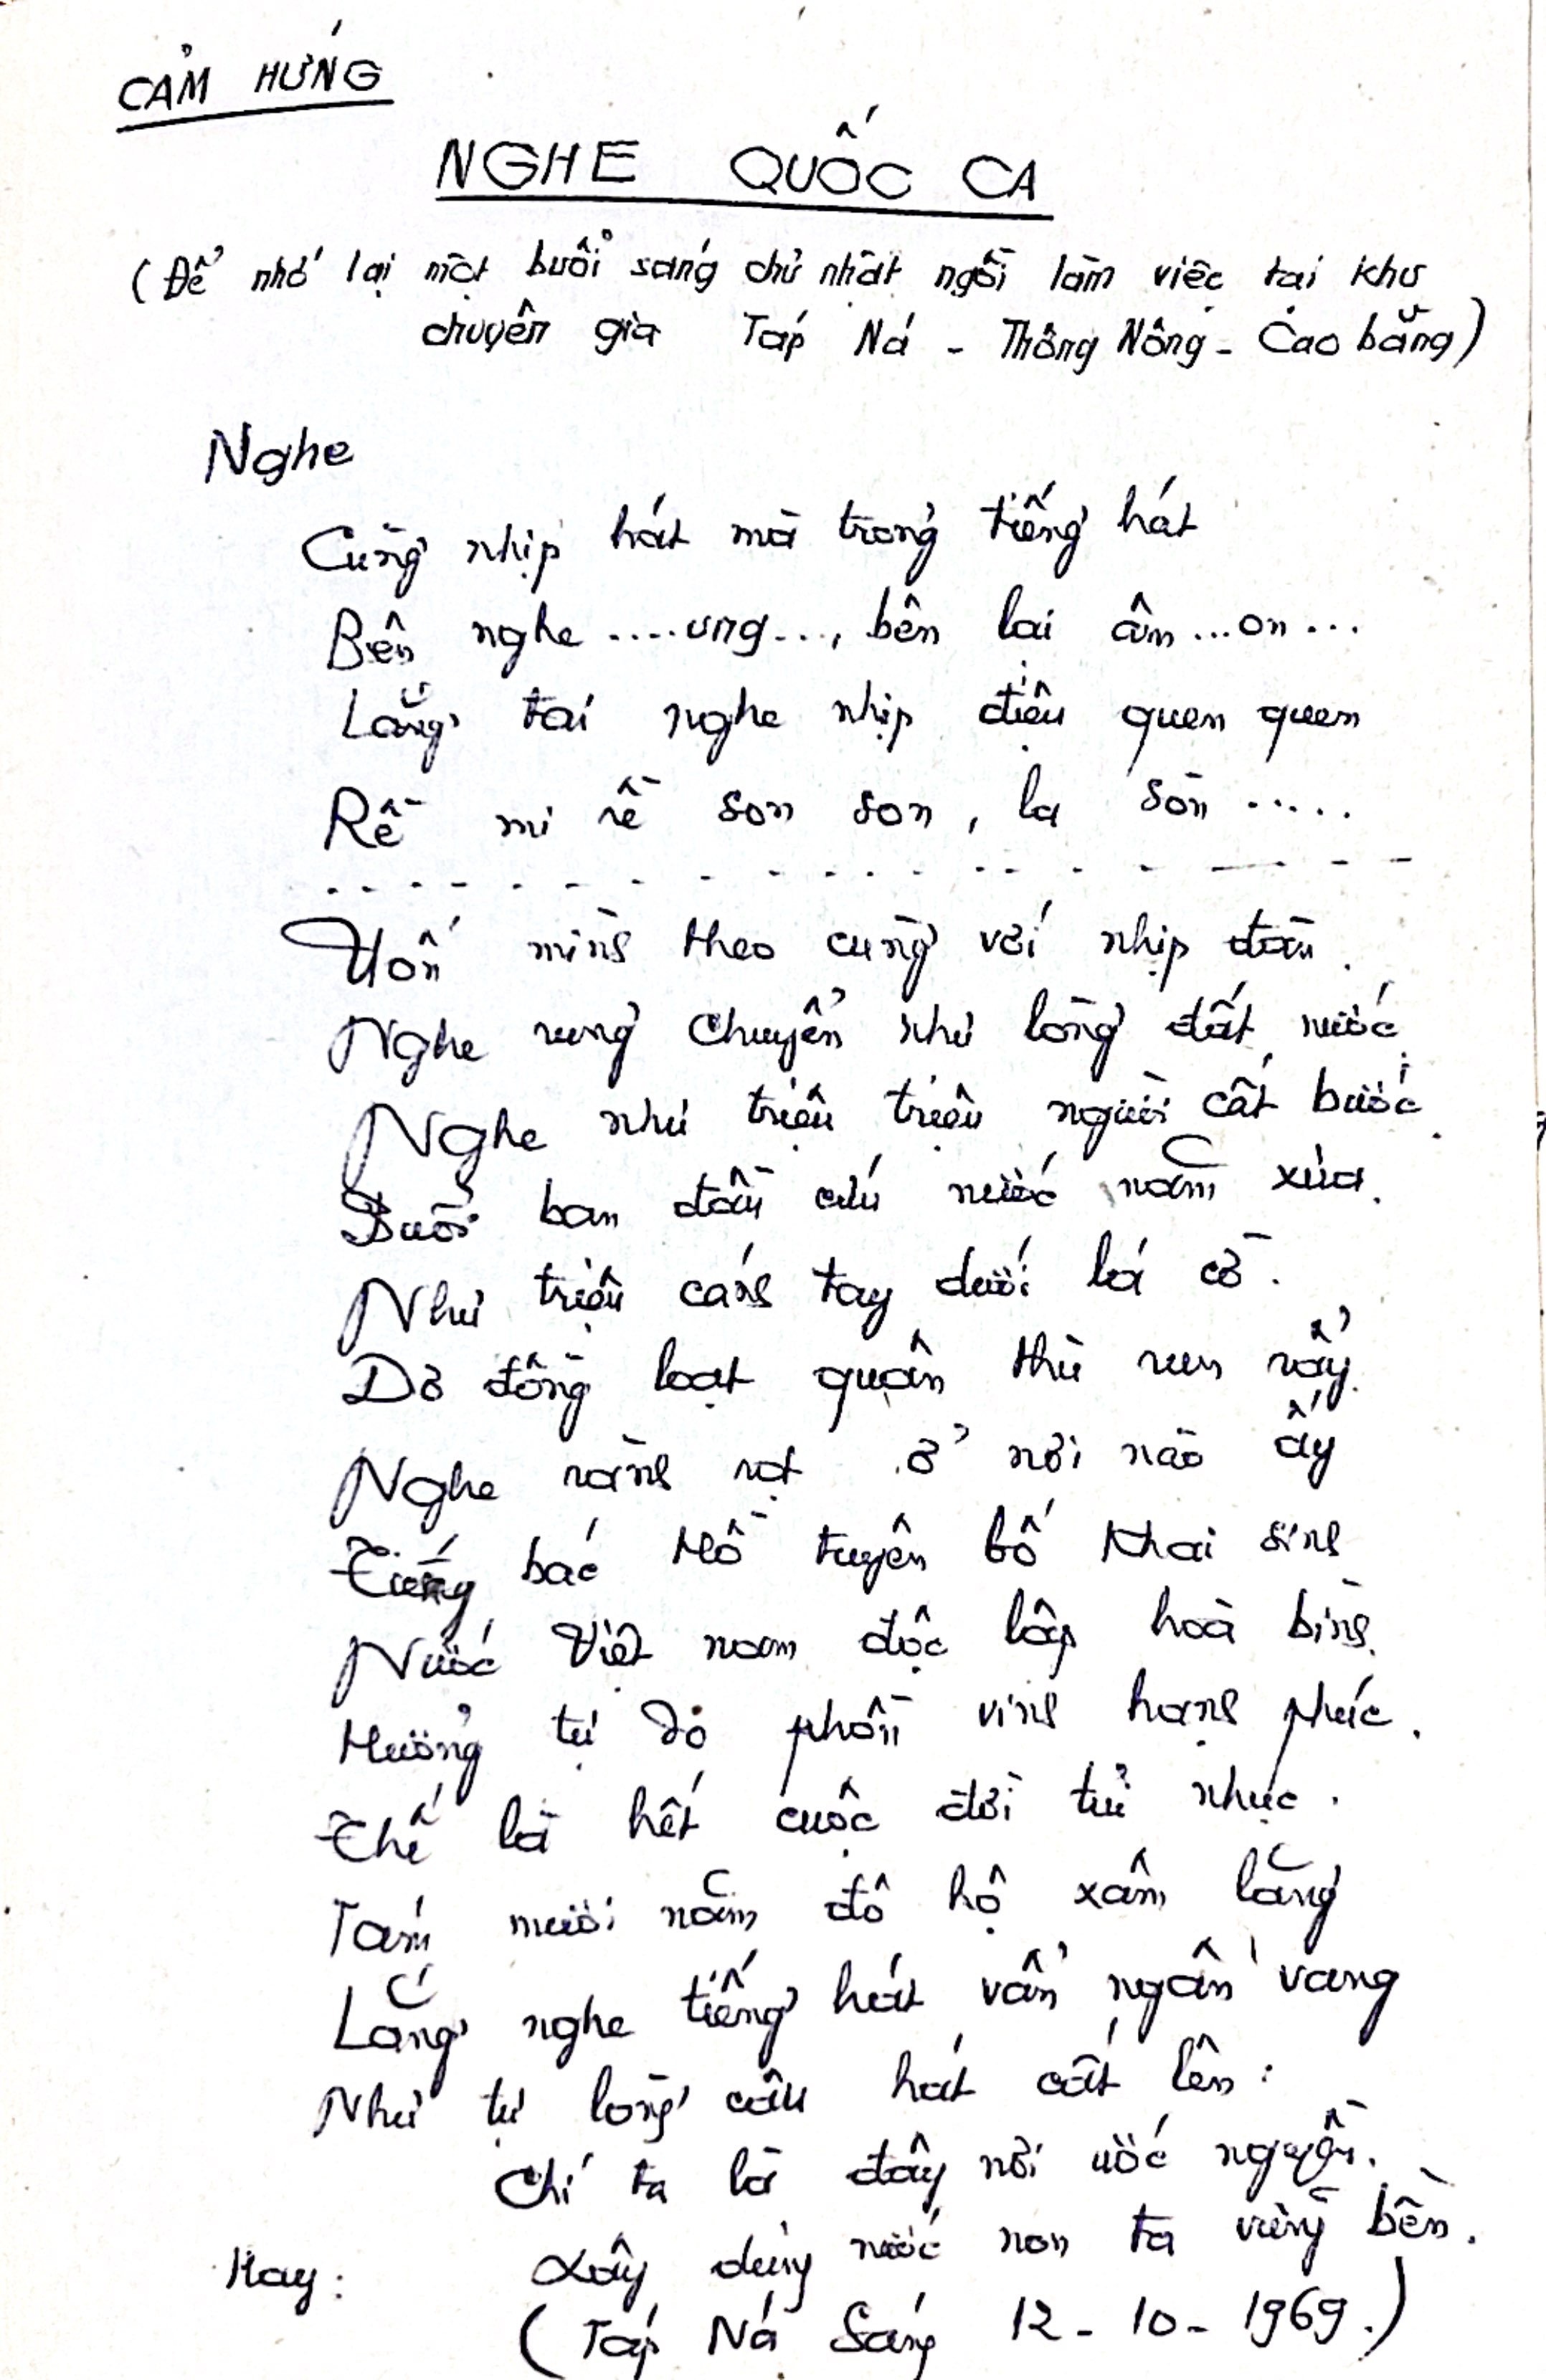 CẢM HỨNG
NGHE QUỐC CA
(Để nhớ lại một buổi sáng chủ nhật ngồi làm việc tại khu
chuyên gia Táp Ná - Thông Nông - Cao bằng)
Nghe
Cùng nhịp hát mà trong tiếng hát
Bên nghe ....ưng..., bên lai âm...on...
Lắng tai nghe nhịp điệu quen quen
Rề mi rề son son, la sòn .....
Hồn mình theo cùng với nhịp đàn.
Nghe rung chuyển như lòng đất nước.
Nghe như triệu triệu người cất bước.
Buổi ban đầu cứu nước năm xưa.
Như triệu cánh tay dưới lá cờ.
Dơ đồng loạt quân thù run rẩy.
Nghe rành rọt ở nơi nào ấy
Tiếng bác Hồ tuyên bố khai sinh
Nước Việt nam độc lập hoà bình.
Hưởng tự do phồn vinh hạnh phúc.
Thế là hết cuộc đời tủi nhục.
Tám mươi năm đô hộ xâm lăng
Lắng nghe tiếng hát vẩn ngân vang
Như tự lòng câu hát cất lên:
Chí ta là đây nơi ước nguyền.
Hay: Xây dựng nước non ta vững bền.
(Táp Ná Sáng 12 - 10 - 1969.)